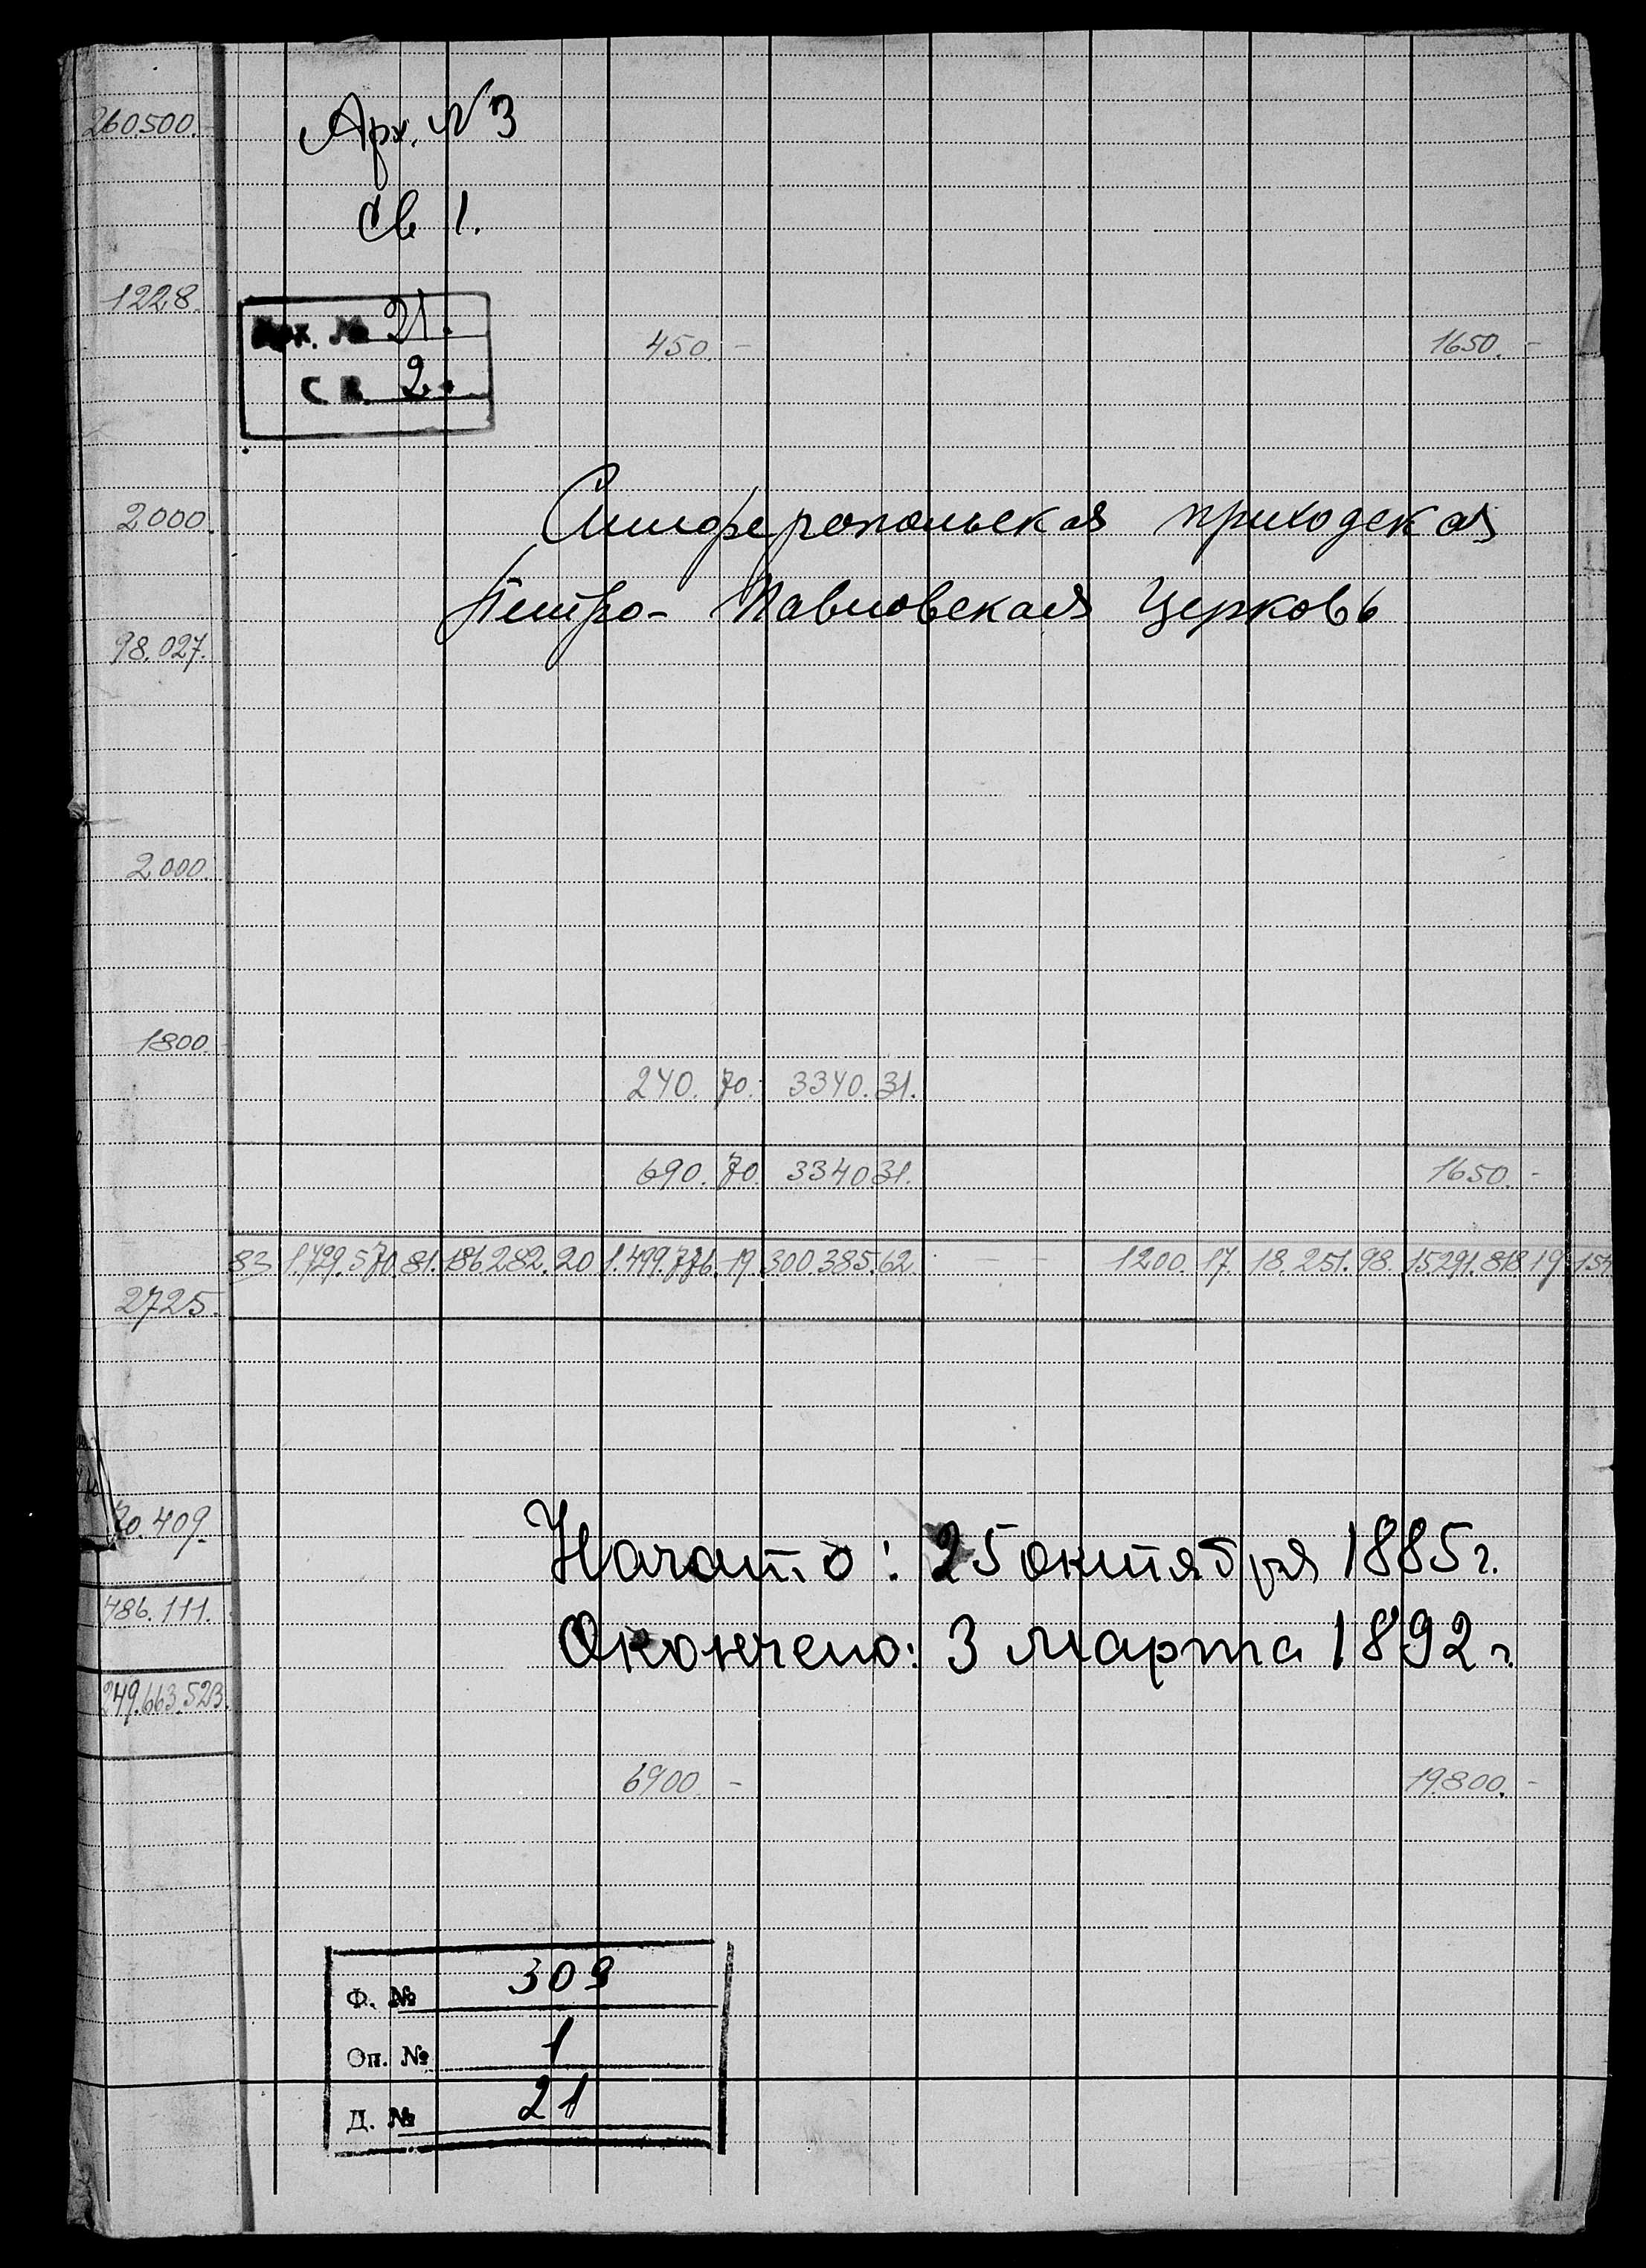 260500.
Арх. № 3
Св 1.
1228.
Арх. № 21.
Св. 2.
450. - 1650. -
2000.
Симферопольская приходская
Петро- Павловская Церковь
98.027.
2.000.
1800.
240. 70. 3340. 31.
690. 70. 3340 31. 1650. -
83 1.729.570. 81. 186.282. 20 1.499.776. 19. 300.385. 62. - - 1200. 17. 18.251. 98. 15291.818 19 154
2725.
70.409.
Начато: 25 октября 1885 г.
Окончено: 3 марта 1892 г.
486.111.
249.663.523.
6900. - 19.800. -
Ф. № 309
Оп. № 1
Д. № 21